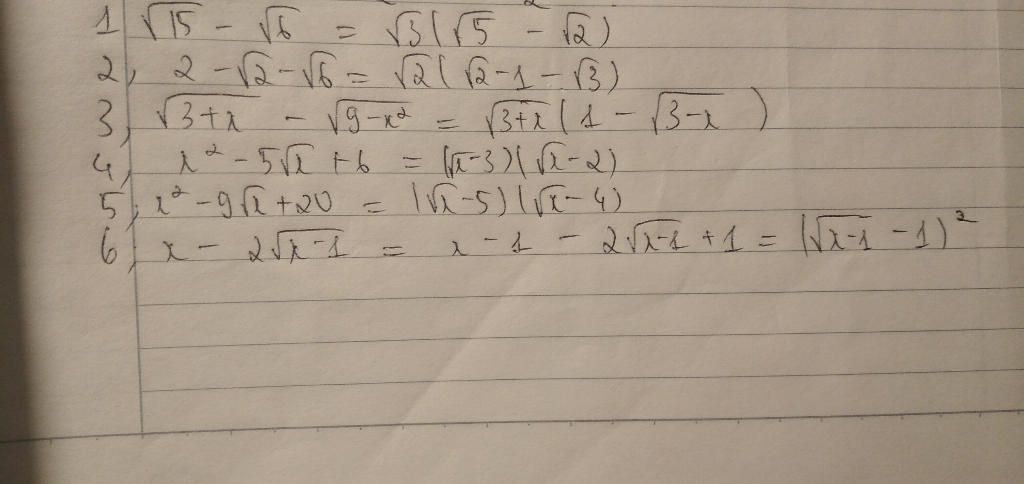 1 √15 - √6 = √3(√5 - √2)
2, 2 - √2 - √6 = √2(√2 - 1 - √3)
3, √(3+x) - √(9-x²) = √(3+x)(1 - √(3-x))
4, x² - 5√x + 6 = (√x - 3)(√x - 2)
5, x² - 9√x + 20 = (√x - 5)(√x - 4)
6, x - 2√(x-1) = x - 1 - 2√(x-1) + 1 = (√(x-1) - 1)²